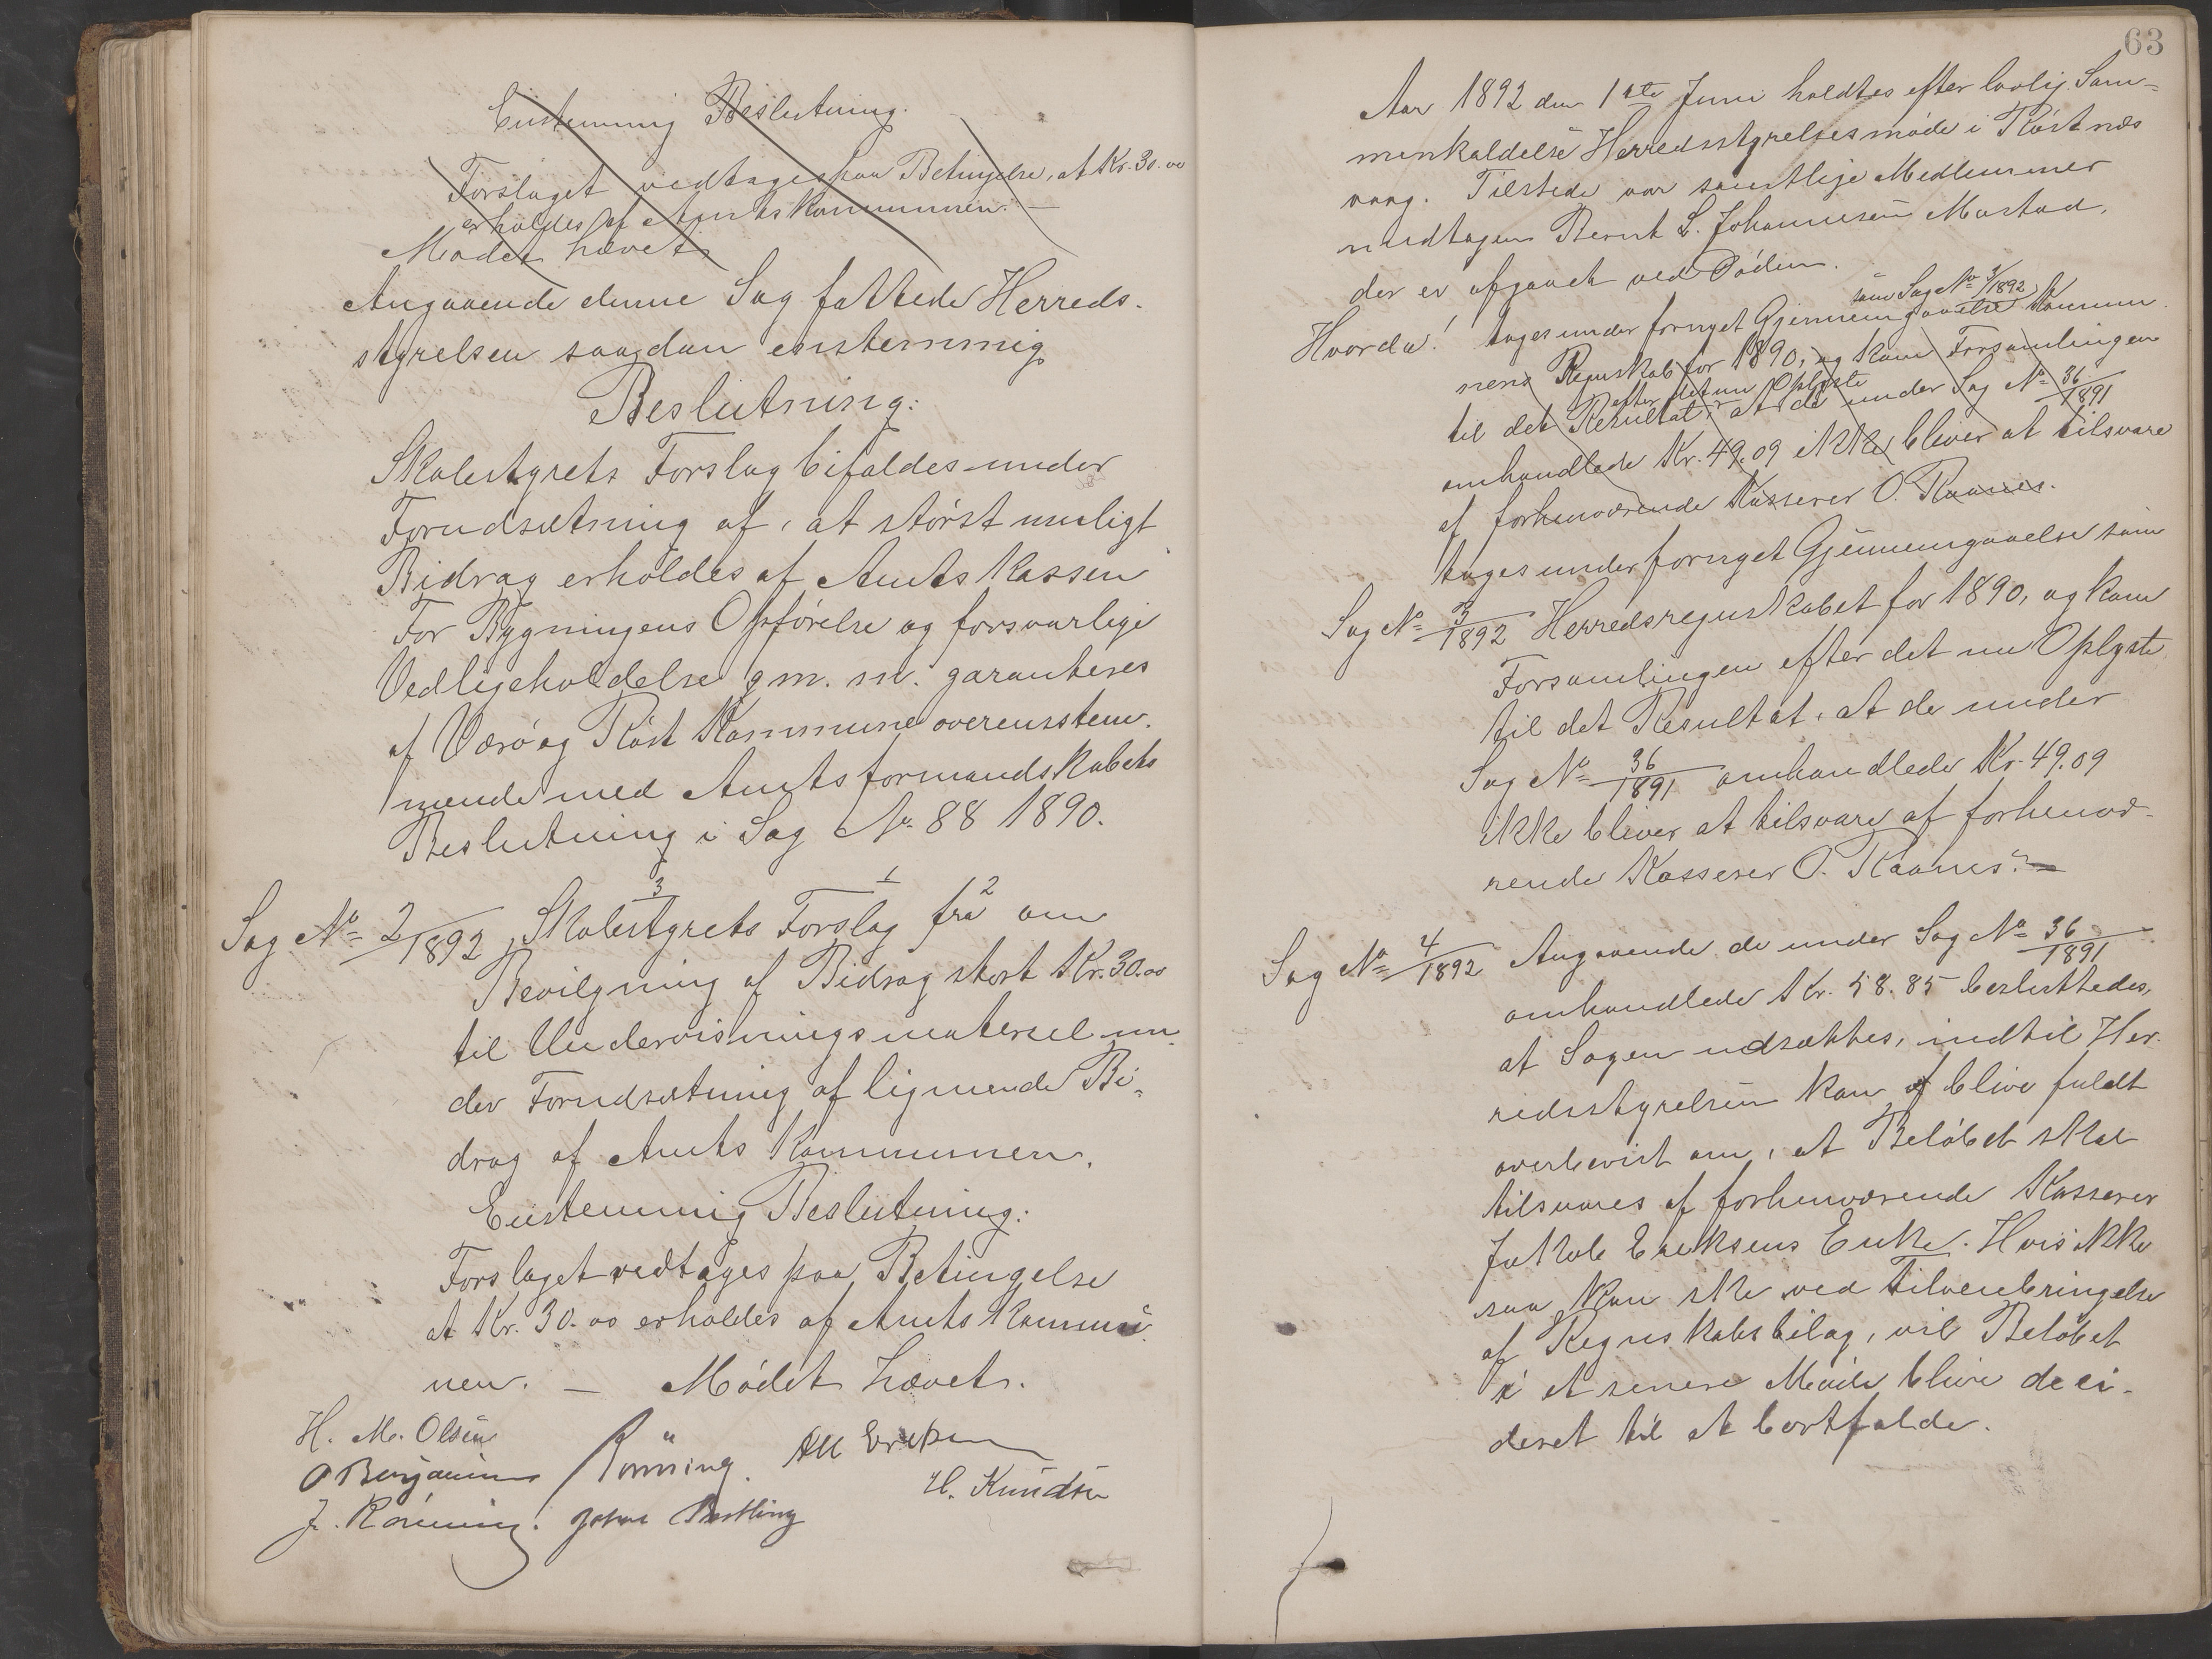 Enstemmig Beslutning.
Forslaget vedtages paa Betingelse, at Kr. 30.00
erholdes af Amtskommunen. —
Mødet hævet
Angaaende denne Sag fattede Herreds-
styrelsen saadan enstemmig
Beslutning:
Skolestyrets Forslag bifaldes under
Forudsætning af, at størst muligt
Bidrag erholdes af Amtskassen
For Bygningens Opførelse og forsvarlige
Vedligeholdelse m. m. garanteres
af Værø og Røst Kommune overensstem-
mende med Amtsformandskabets
Beslutning i Sag No. 88 1890.
Sag No 2/1892 Skolestyrets Forslag fra om
Bevilgning af Bidrag stort Kr. 30.00
til Undervisningsmateriel un-
der Forudsætning af lignende Bi-
drag af Amtskommunen.
Enstemmig Beslutning:
Forslaget vedtages paa Betingelse
at Kr. 30.00 erholdes af Amtskommu-
nen. — Mødet hævet.
H. M. Olsen
O Benjaminsen Rønning. Ericksen
H. Knudsen
J. Rønning. Johan
63
Aar 1892 den 1ste Juni holdtes efter lovlig Sam-
menkaldelse Herredsstyrelsesmøde i Røstnæs
vaag. Tilstede var samtlige Medlemmer
undtagen Bernt L. Johannesen Mostad,
der er afgaaet ved Døden.
som Sag No 3/1892
Hvorda! toges under fornyet Gjennemgaaelse Kommu
nens Regnskab for 1890, og kom Forsamlingen
efter det nu Oplyste
til det Resultat, at de under Sag No 36/1891
omhandlede Kr. 49.09 ikke bliver at tilsvare
af forhenværende Kasserer O. Raanes.
toges under fornyet Gjennemgaaelse som
Sag No 3/1892 Herredsregnskabet for 1890, og kom
Forsamlingen efter det nu Oplyste
til det Resultat, at de under
Sag No 36/1891 omhandlede Kr. 49.09
ikke bliver at tilsvare af forhenvæ-
rende Kasserer O. Raanes. —
Sag No 4/1892 Angaaende de under Sag No 36/1891
omhandlede Kr. 58.85 besluttedes,
at Sagen udsættes, indtil Her-
redsstyrelsen kan blive fuldt
overbevist om, at Beløbet skal
tilsvares af forhenværende Kasserer
Jakob Eriksens Enke. Hvis ikke
saa kan ske ved Tilveiebringelse
af Regnskabsbilag, vil Beløbet
i et senere Møde blive deci-
deret til at bortfalde.